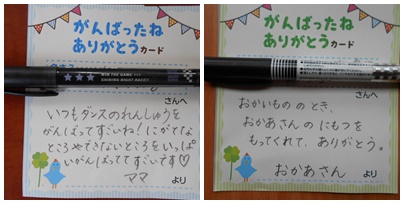 がんばったね
ありがとうカード
WIN THE GAME
SHINING NIGHT RACE!!
さんへ
いつもダンスのれんしゅうを
がんばってすごいね!にがてな
ところやできないところをいっぱ
いがんばっててすごいです♡
ママ
より
がんばったね
ありがとうカード
さんへ
おかいもの のとき、
おかあさん の にもつを
もってくれて、ありがとう。
おかあさん
より